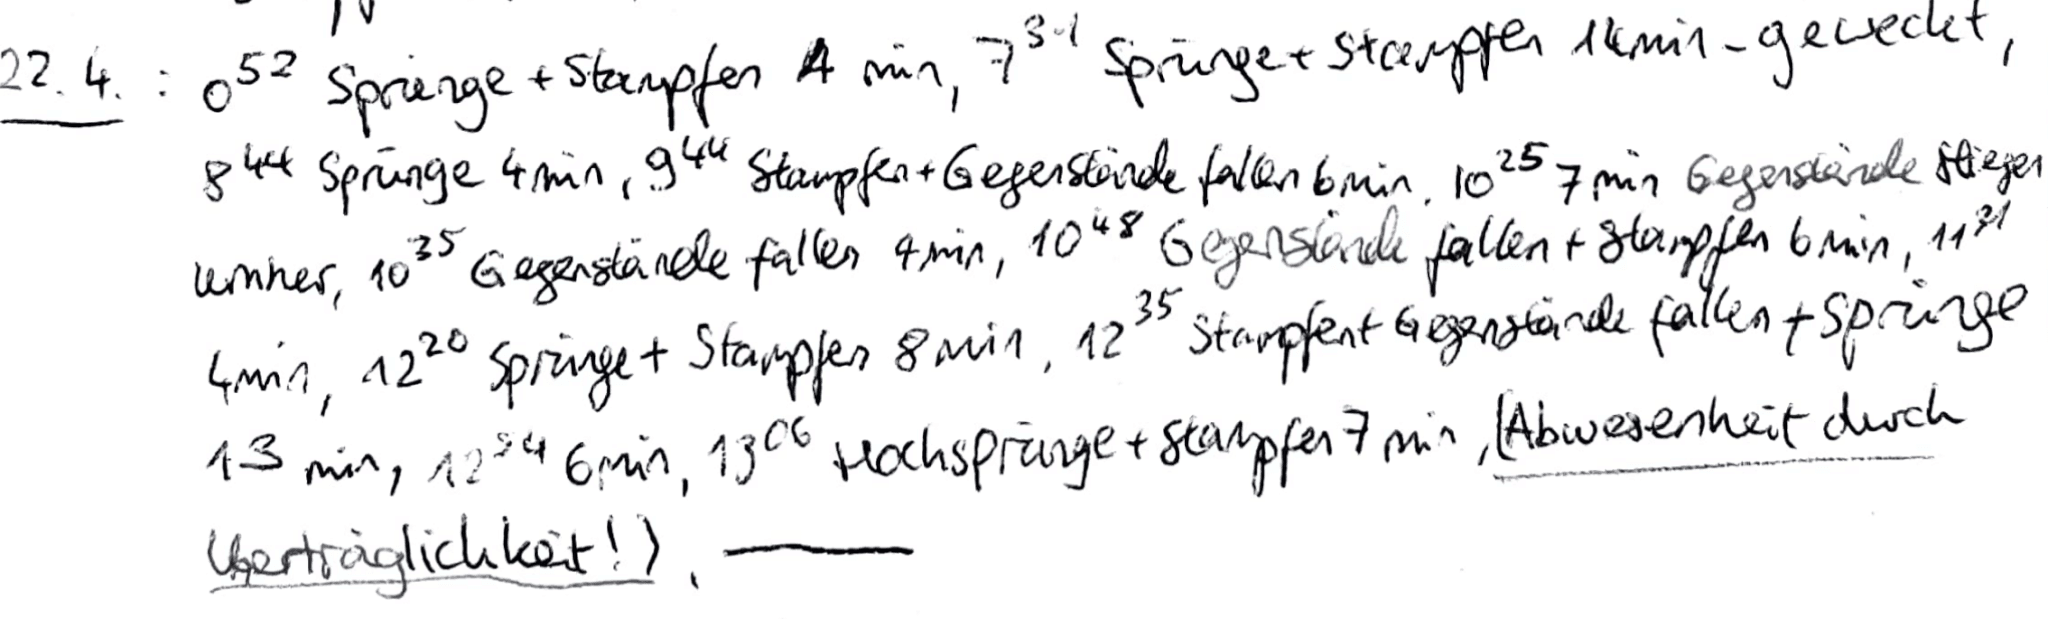 22.4.: 0⁵² Sprünge + Stampfen 4 min, 7³¹ Sprünge + Stampfen 14min - geweckt,
8⁴⁴ Sprünge 4min, 9⁴⁴ Stampfen + Gegenstände fallen 6min, 10²⁵ 7min Gegenstände fliegen
umher, 10³⁵ Gegenstände fallen 4min, 10⁴⁸ Gegenstände fallen + Stampfen 6min, 11³¹
4min, 12²⁰ Sprünge + Stampfen 8min, 12³⁵ Stampfen + Gegenstände fallen + Sprünge
13 min, 12⁵⁴ 6min, 13⁰⁶ Hochsprünge + Stampfen 7 min, (Abwesenheit durch
!).